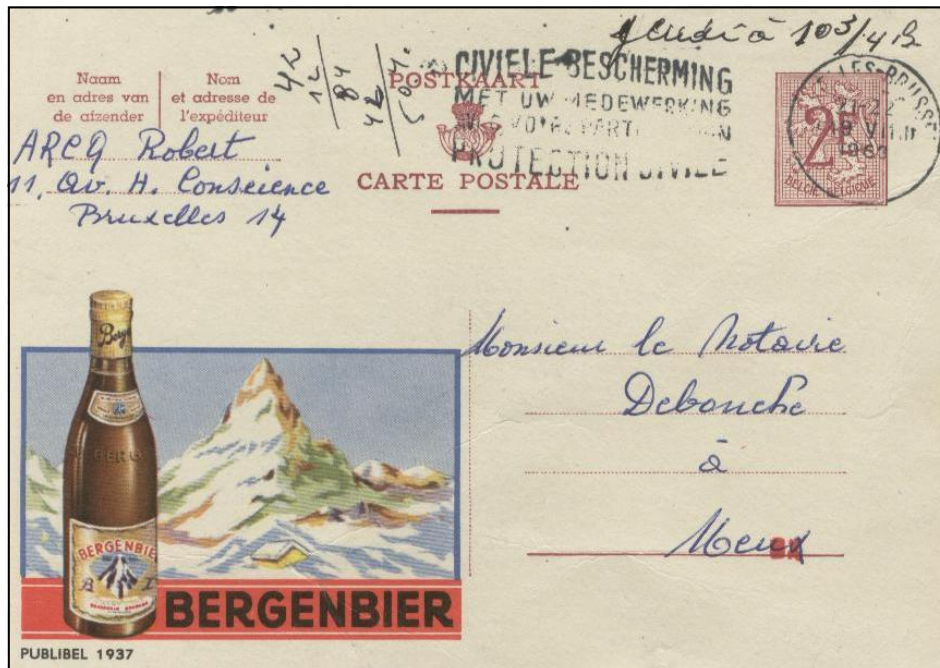 Jeudi à 10 3/4 h
42
12
84
42
504.
Naam
en adres van
de afzender
Nom
et adresse de
l'expéditeur
POSTKAART
CARTE POSTALE
CIVIELE BESCHERMING
MET UW MEDEWERKING
PROTECTION CIVILE
2F
BELGIE-BELGIQUE
1960
ARCQ Robert
11, Av. H. Conscience
Bruxelles 14
Monsieur le Notaire
Debouche
à
Meux
Berge
BERGENBIE
BERGENBIER
PUBLIBEL 1937